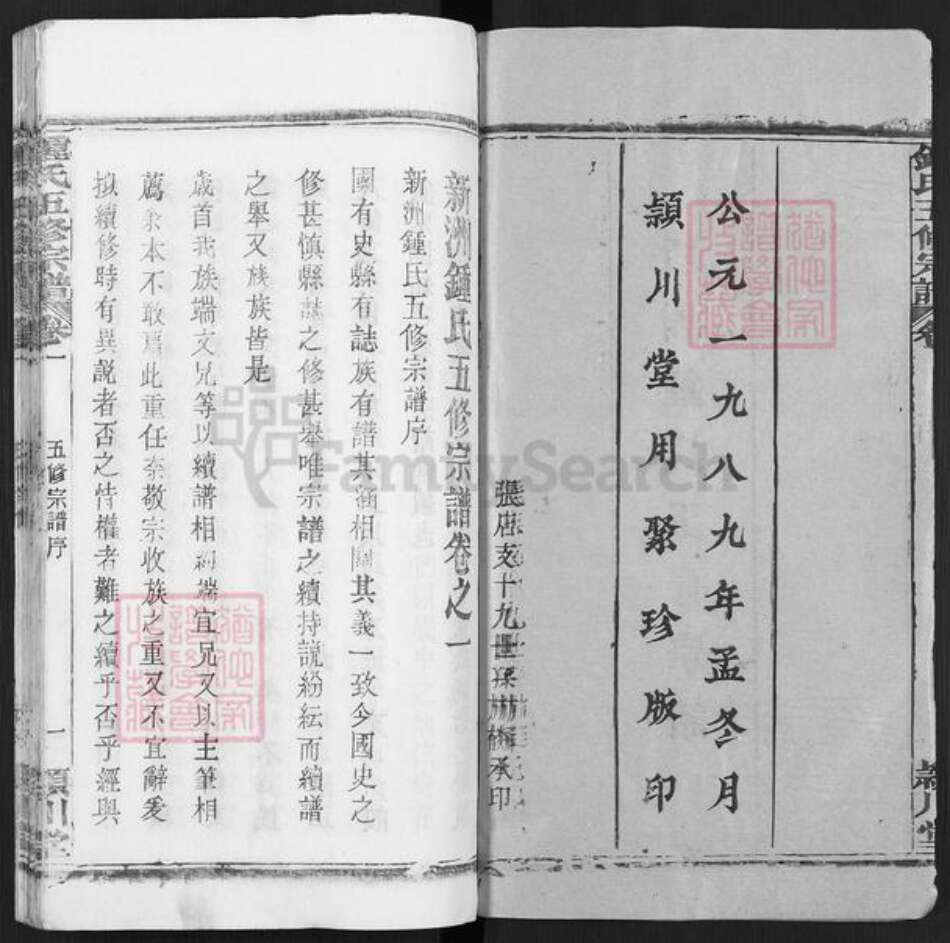 公元一九八九年孟冬月
潁川堂用聚珍版印
張店支十九世
承印
新洲鍾氏五修宗譜卷之一
新洲鍾氏五修宗譜序
國有史縣有誌族有譜其涵相關其義一致今國史之
修甚慎縣誌之修甚舉唯宗譜之續持説紛紜而續譜
之舉又族族皆是
歲首我族端文兄等以續譜相約端宜兄又以主筆相
薦余本不敢肩此重任奈敬宗收族之重又不宜辭爰
拟續修時有異説者否之恃權者難之續乎否乎經與
鍾氏五修宗譜
卷一
五修宗譜序
一
潁川堂
FamilySearch